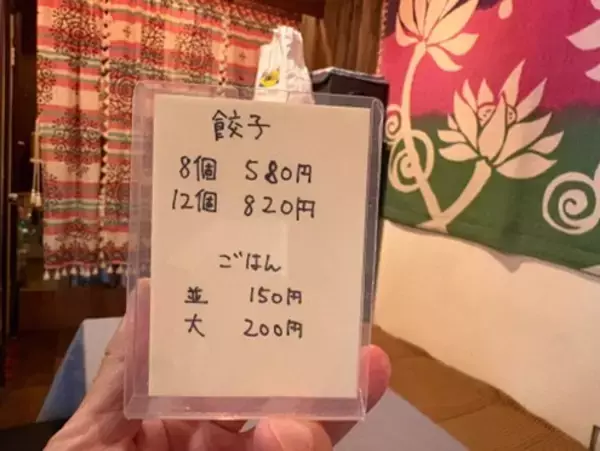 餃子
8個 580円
12個 820円
ごはん
並 150円
大 200円